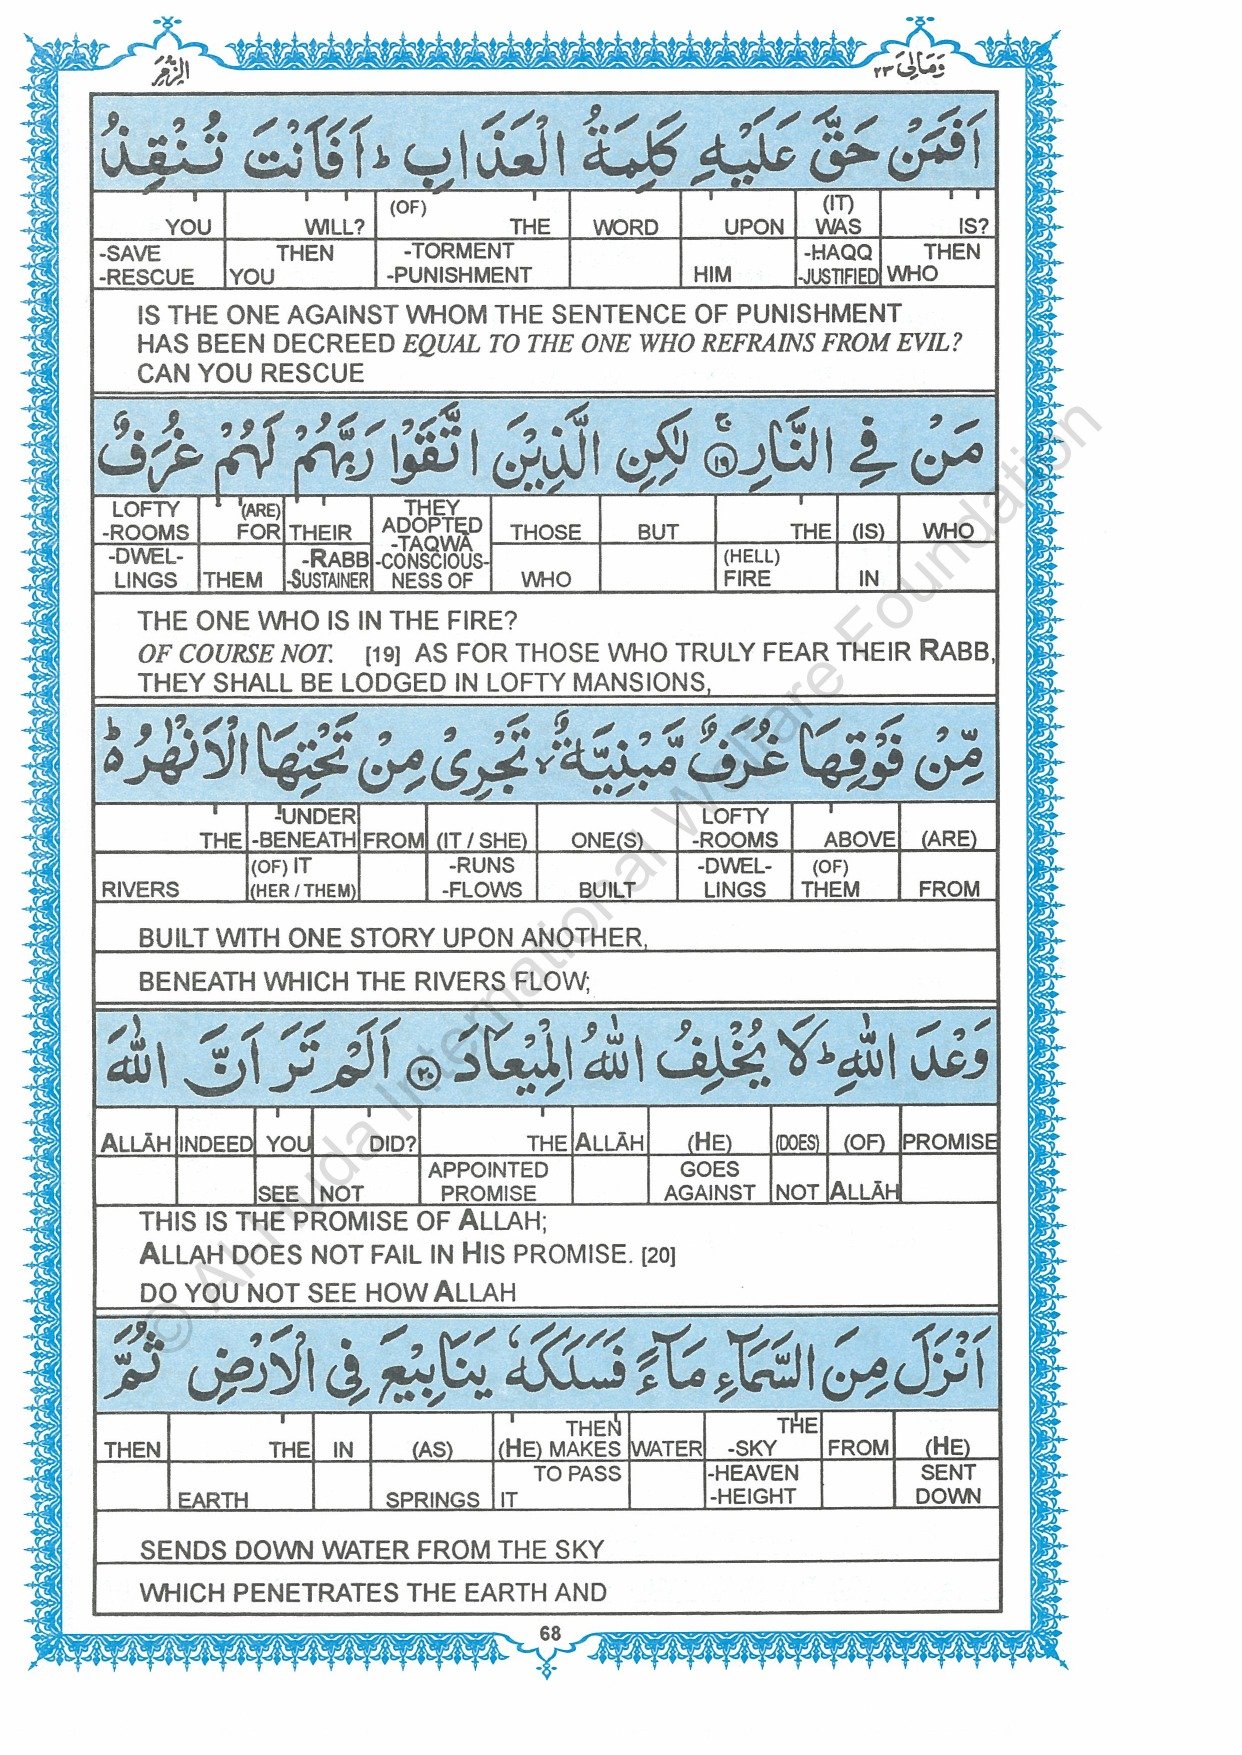 الزمر
ومالی ٢٣
اَفَمَنْ حَقَّ عَلَيْهِ كَلِمَةُ الْعَذَابِ ؕ اَفَاَنْتَ تُنْقِذُ
YOU WILL? (OF) THE WORD UPON (IT) WAS IS?
-SAVE -RESCUE THEN YOU -TORMENT -PUNISHMENT HIM -HAQQ -JUSTIFIED THEN WHO
IS THE ONE AGAINST WHOM THE SENTENCE OF PUNISHMENT
HAS BEEN DECREED EQUAL TO THE ONE WHO REFRAINS FROM EVIL?
CAN YOU RESCUE
مَنْ فِي النَّارِ ۚ ١٩ لٰكِنِ الَّذِيْنَ اتَّقَوْا رَبَّهُمْ لَهُمْ غُرَفٌ
LOFTY -ROOMS (ARE) FOR THEIR THEY ADOPTED -TAQWĀ THOSE BUT THE (IS) WHO
-DWEL- LINGS THEM -RABB -SUSTAINER -CONSCIOUS- NESS OF WHO (HELL) FIRE IN
THE ONE WHO IS IN THE FIRE?
OF COURSE NOT. [19] AS FOR THOSE WHO TRULY FEAR THEIR RABB,
THEY SHALL BE LODGED IN LOFTY MANSIONS,
مِّنْ فَوْقِهَا غُرَفٌ مَّبْنِيَّةٌ ۙ تَجْرِيْ مِنْ تَحْتِهَا الْاَنْهٰرُ ؕ
THE -UNDER -BENEATH FROM (IT / SHE) ONE(S) LOFTY -ROOMS ABOVE (ARE)
RIVERS (OF) IT (HER / THEM) -RUNS -FLOWS BUILT -DWEL- LINGS (OF) THEM FROM
BUILT WITH ONE STORY UPON ANOTHER,
BENEATH WHICH THE RIVERS FLOW;
وَعْدَ اللّٰهِ ؕ لَا يُخْلِفُ اللّٰهُ الْمِيْعَادَ ٢٠ اَلَمْ تَرَ اَنَّ اللّٰهَ
ALLĀH INDEED YOU DID? THE ALLĀH (HE) (DOES) (OF) PROMISE
SEE NOT APPOINTED PROMISE GOES AGAINST NOT ALLĀH
THIS IS THE PROMISE OF ALLAH;
ALLAH DOES NOT FAIL IN HIS PROMISE. [20]
DO YOU NOT SEE HOW ALLAH
اَنْزَلَ مِنَ السَّمَآءِ مَآءً فَسَلَكَهٗ يَنَابِيْعَ فِي الْاَرْضِ ثُمَّ
THEN THE IN (AS) THEN (HE) MAKES WATER THE -SKY FROM (HE)
EARTH SPRINGS TO PASS IT -HEAVEN -HEIGHT SENT DOWN
SENDS DOWN WATER FROM THE SKY
WHICH PENETRATES THE EARTH AND
68
© Al-Huda International Welfare Foundation